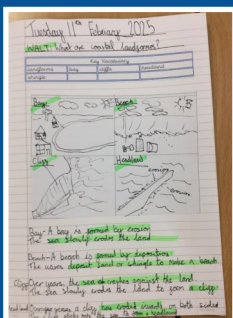 Tuesday 11th February 2025
WALT: What are coastal landforms?
Key Vocabulary
landforms bay cliffs headland
shingle
Bay Beach
Cliff Headland
Erosion
Erosion
Bay- A bay is formed by erosion
The sea slowly erodes the land
Beach- A beach is formed by deposition
The waves deposit sand or shingle to make a beach
Over years, the sea crashes against the land.
The sea slowly erodes the land to form a cliff
a cliff has eroded inwards on both sides
to form a headland